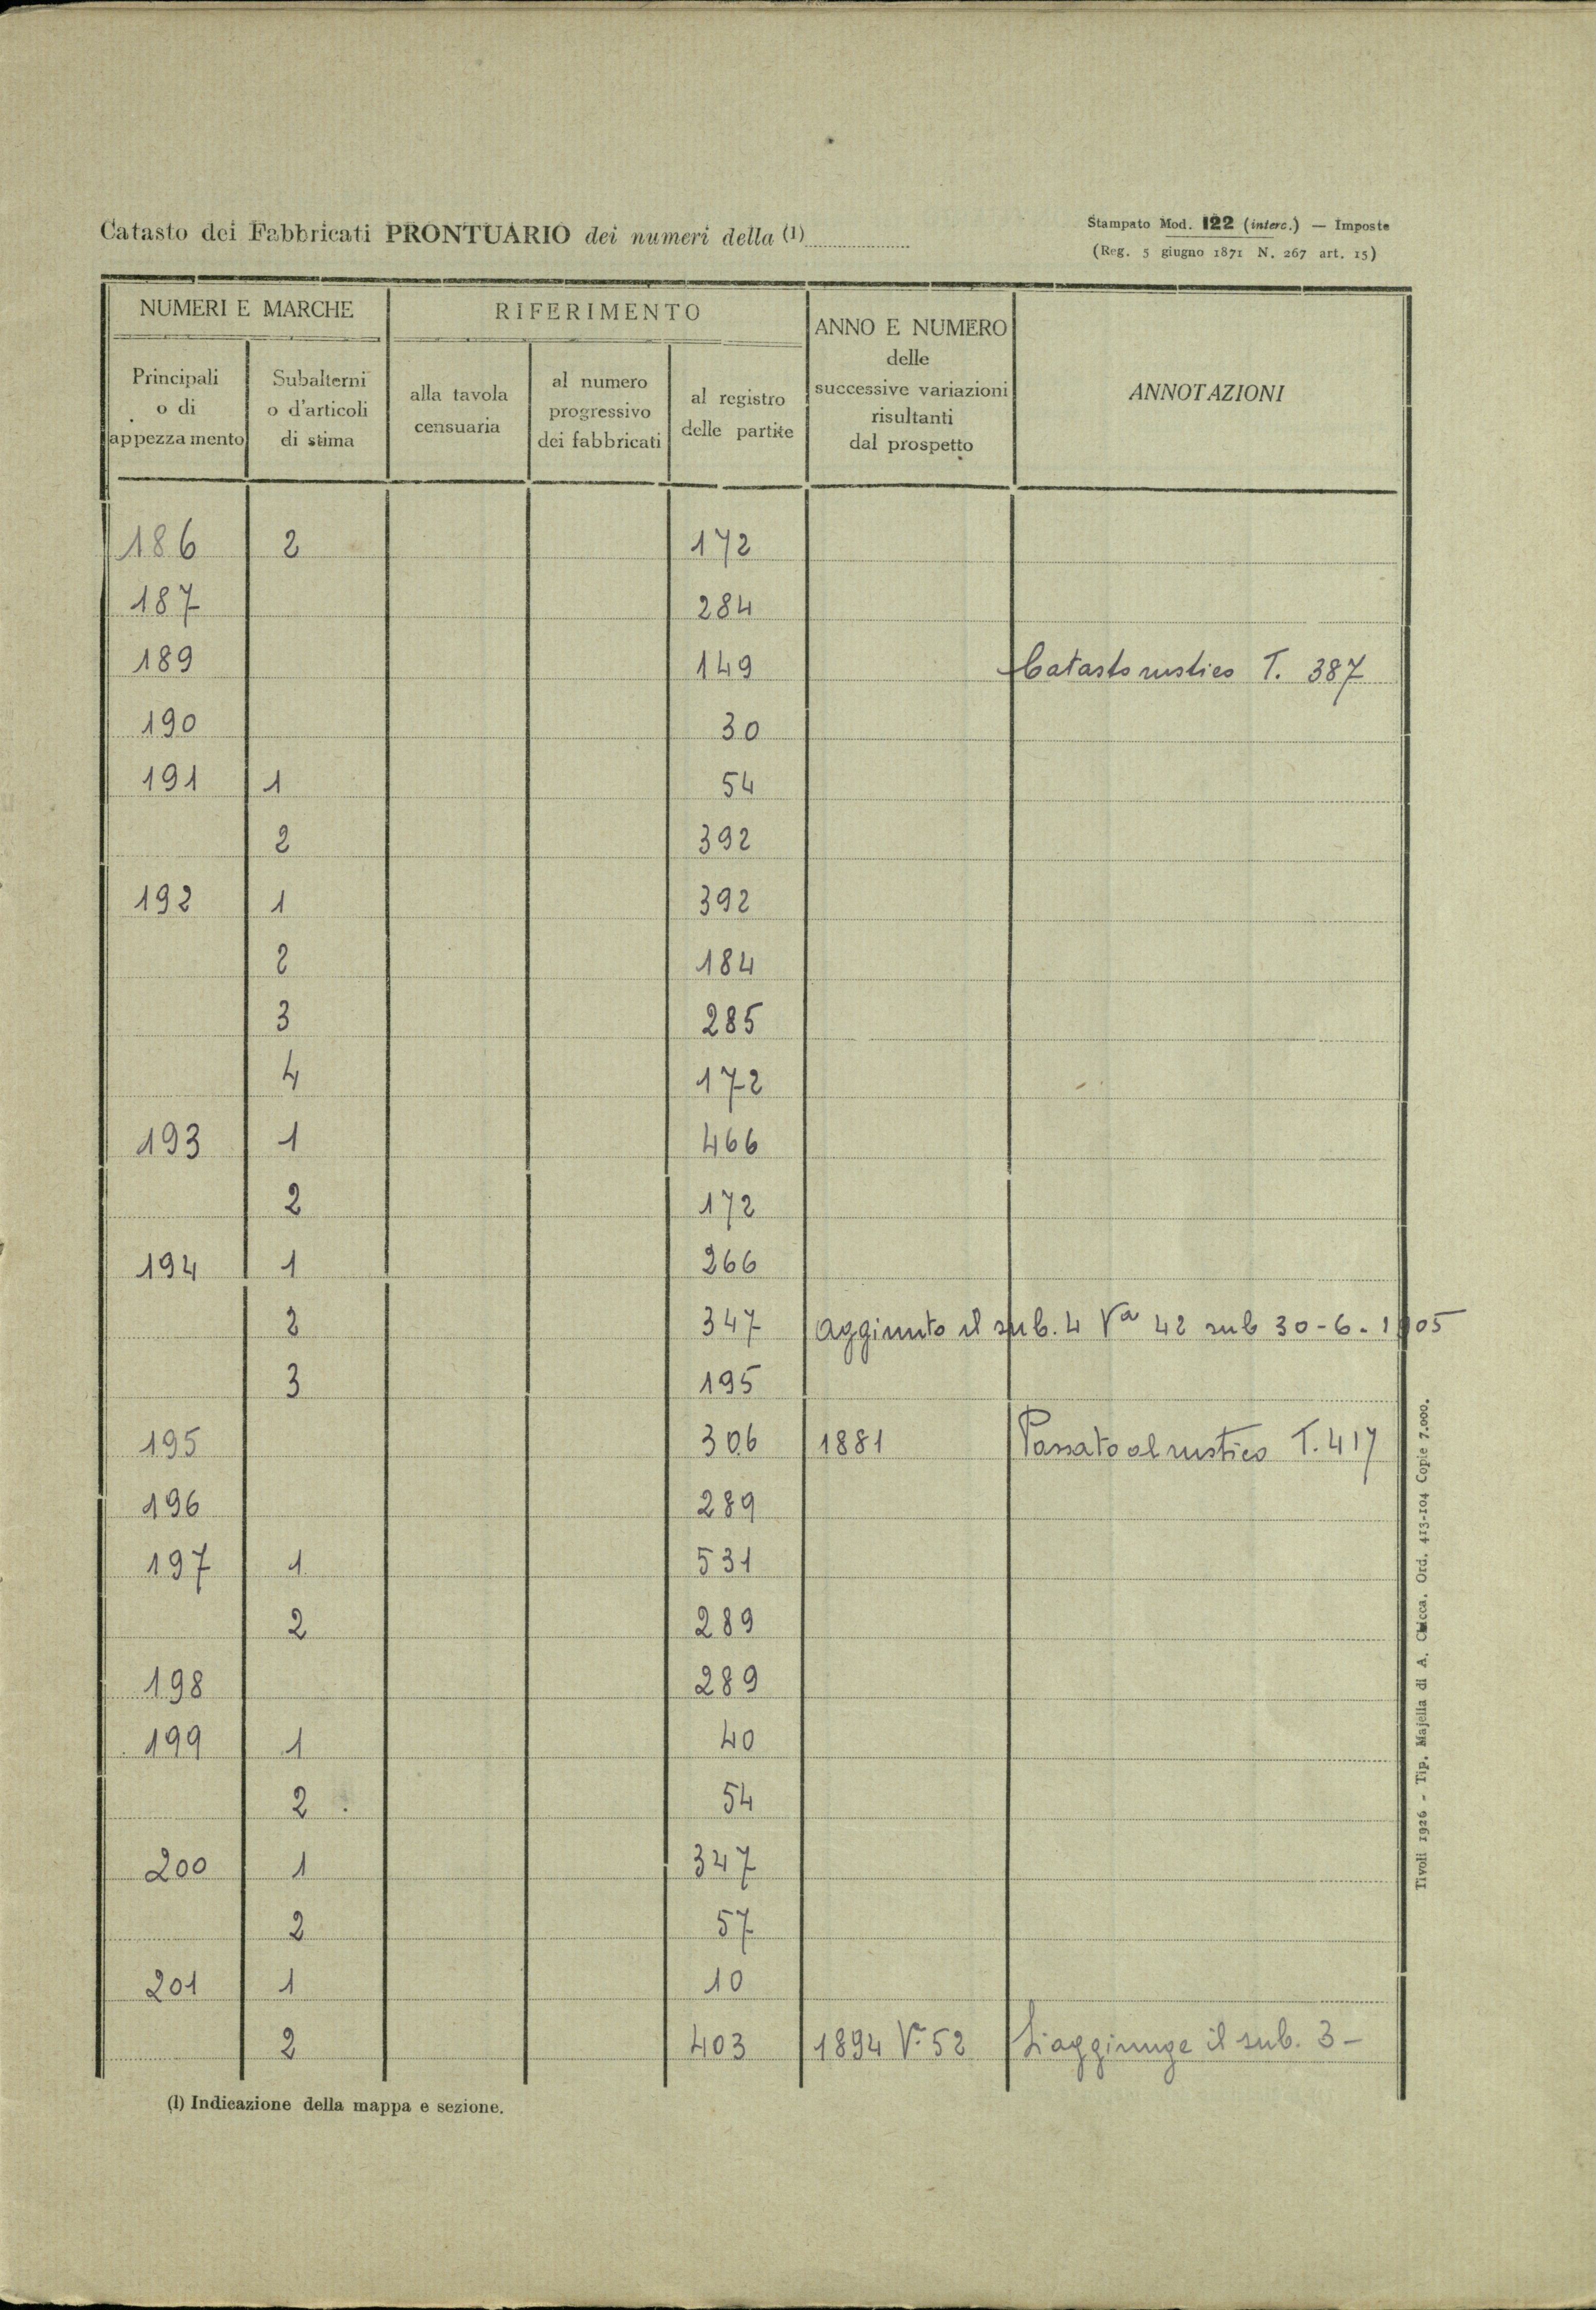 Catasto dei Fabbricati PRONTUARIO dei numeri della (1)
Stampato Mod. 122 (interc.) — Imposte
(Reg. 5 giugno 1871 N. 267 art. 15)
NUMERI E MARCHE
RIFERIMENTO
ANNO E NUMERO
delle
successive variazioni
risultanti
dal prospetto
ANNOTAZIONI
Principali
o di
appezzamento
Subalterni
o d'articoli
di stima
alla tavola
censuaria
al numero
progressivo
dei fabbricati
al registro
delle partite
186 2 172
187 284
189 149 Catasto rustico T. 387
190 30
191 1 54
2 392
192 1 392
2 184
3 285
4 172
193 1 466
2 172
194 1 266
2 347 Aggiunto il sub. 4 Va 42 sub 30-6-1905
3 195
195 306 1881 Passato al rustico T. 417
196 289
197 1 531
2 289
198 289
199 1 40
2 54
200 1 347
2 57
201 1 10
2 403 1894 V. 52 Si aggiunge il sub. 3 -
(1) Indicazione della mappa e sezione.
Tivoli 1926 - Tip. Majella di A. Chicca. Ord. 413-104 Copie 7.000.